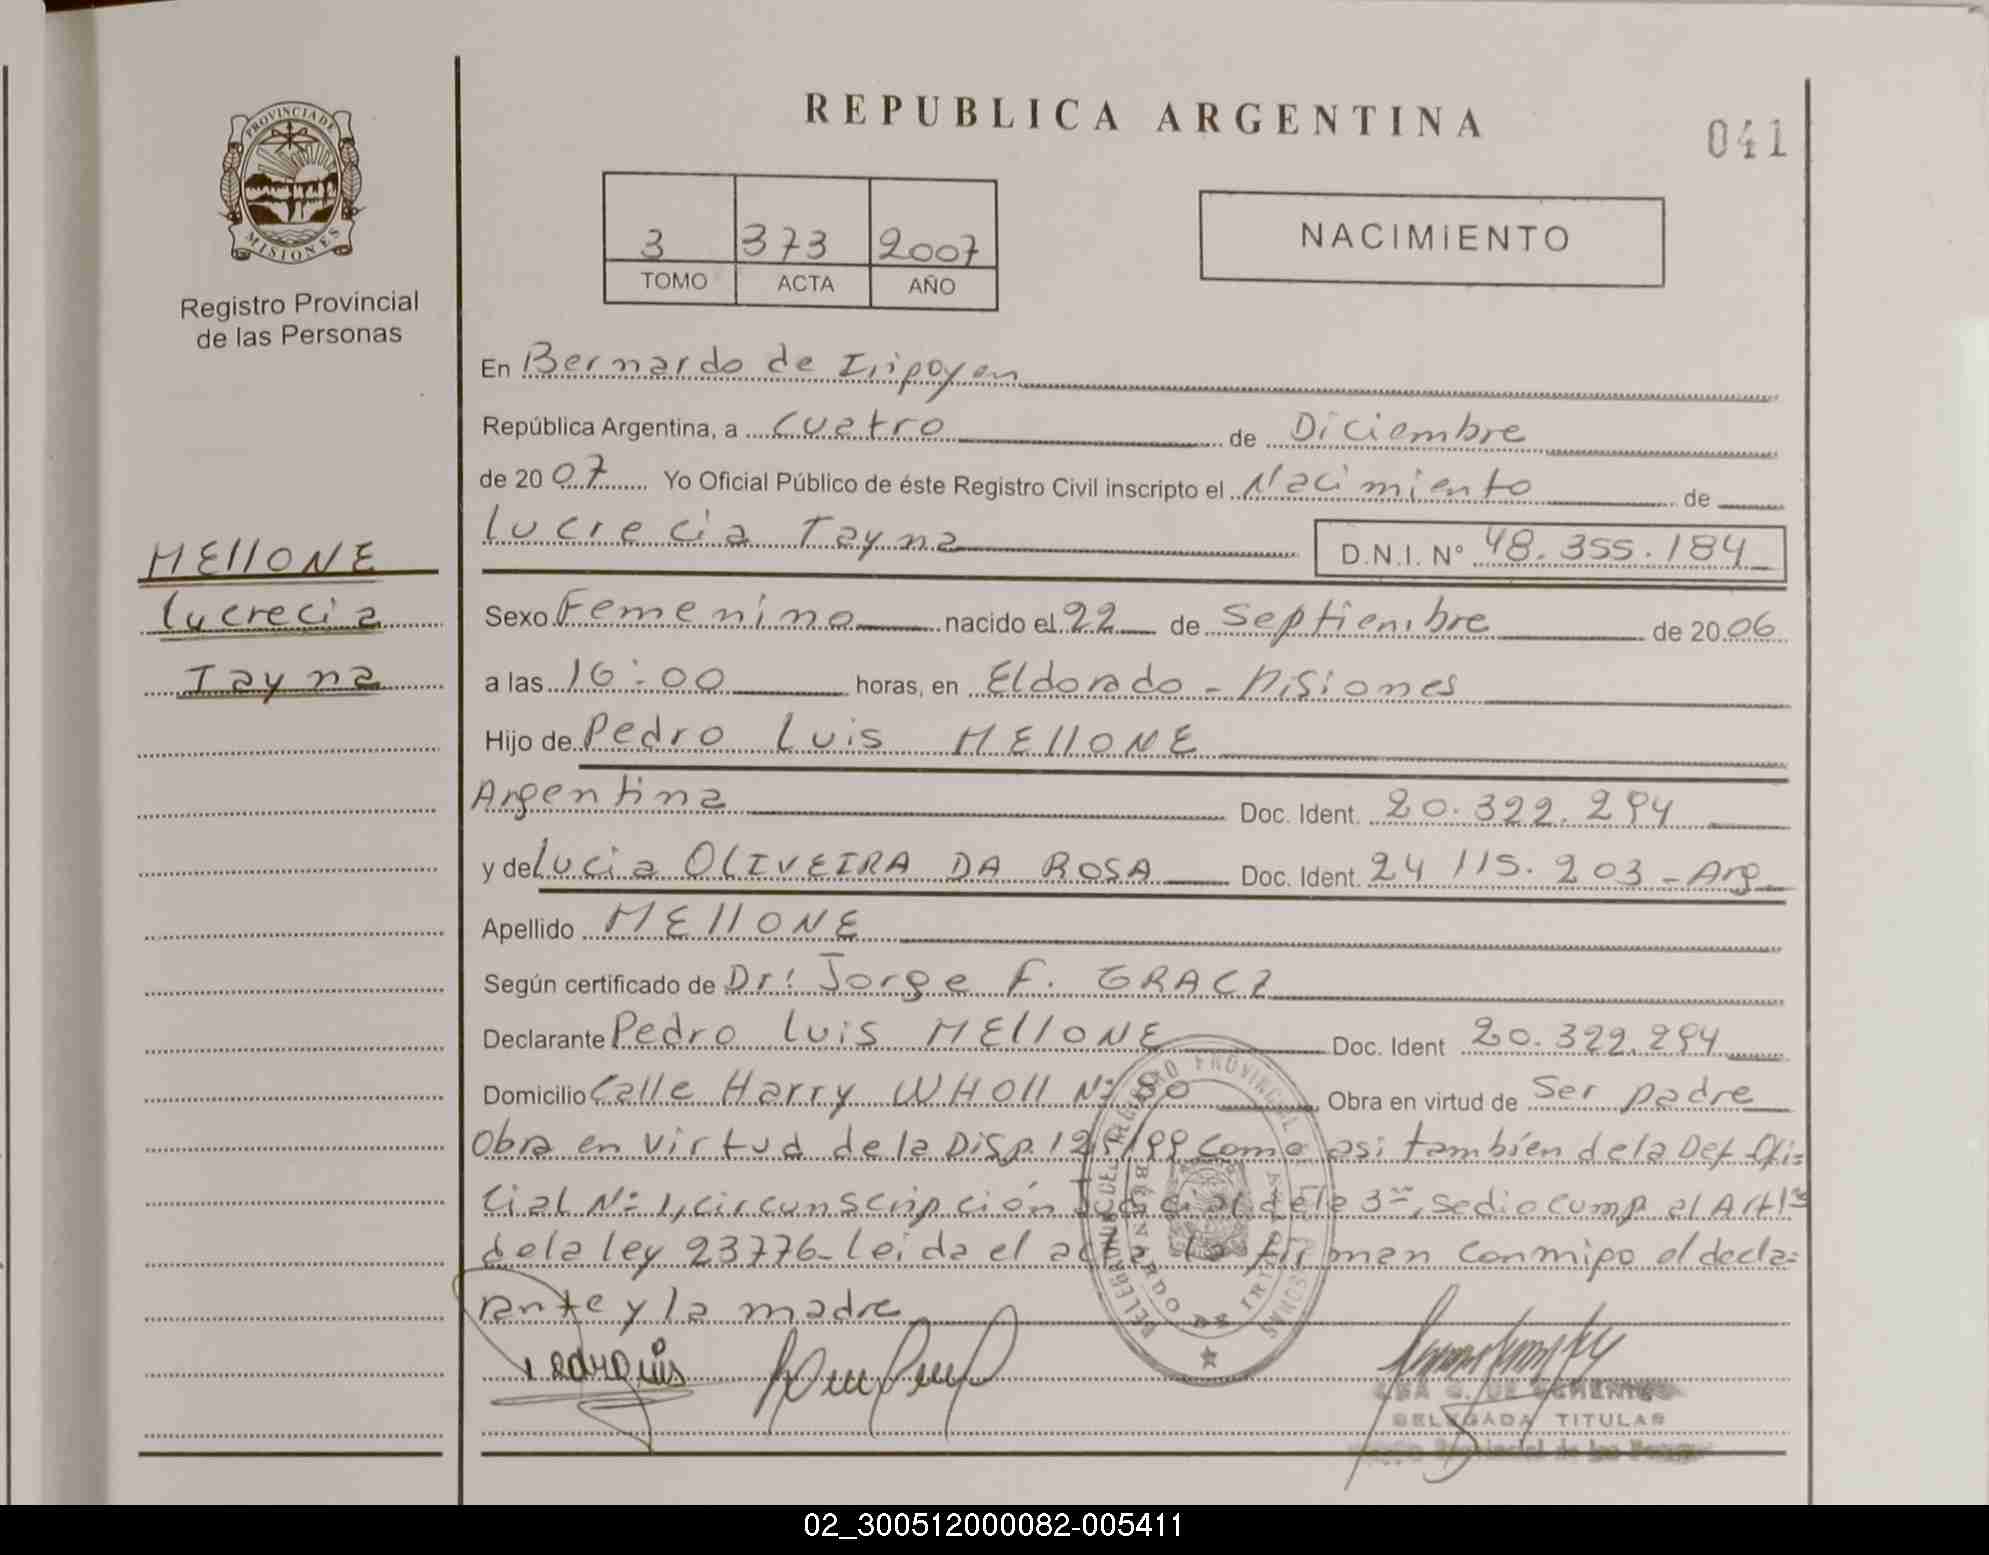 REPUBLICA ARGENTINA
041
PROVINCIA DE MISIONES
Registro Provincial
de las Personas
3 373 2007
TOMO ACTA AÑO
NACIMIENTO
En Bernardo de Iripoyen
República Argentina, a cuatro de Diciembre
de 2007 Yo Oficial Público de éste Registro Civil inscripto el Nacimiento de
Lucrecia Tayna D.N.I. N° 48.355.184
MEllONE
Lucrecia
Tayna
Sexo Femenino nacido el 22 de Septiembre de 2006
a las 16:00 horas, en Eldorado - Misiones
Hijo de Pedro Luis MEllONE
Argentina Doc. Ident. 20.322.294
y de Lucia OLIVEIRA DA ROSA Doc. Ident. 24 115.203 - Arg
Apellido MEllONE
Según certificado de Dr: Jorge F.
Declarante Pedro Luis MEllONE Doc. Ident 20.322.294
Domicilio Calle Harry WHOll N: 80 Obra en virtud de Ser padre
Obra en virtud de la Disp. como asi también de la Def. Ofi=
cial N: 1, circunscripción Judicial de la 3ra, sedio cump. al Art 1
de la ley 23776 - Leida el acta la firman conmipo el decla=
rante y la madre
DELEGADA TITULAR
02_300512000082-005411